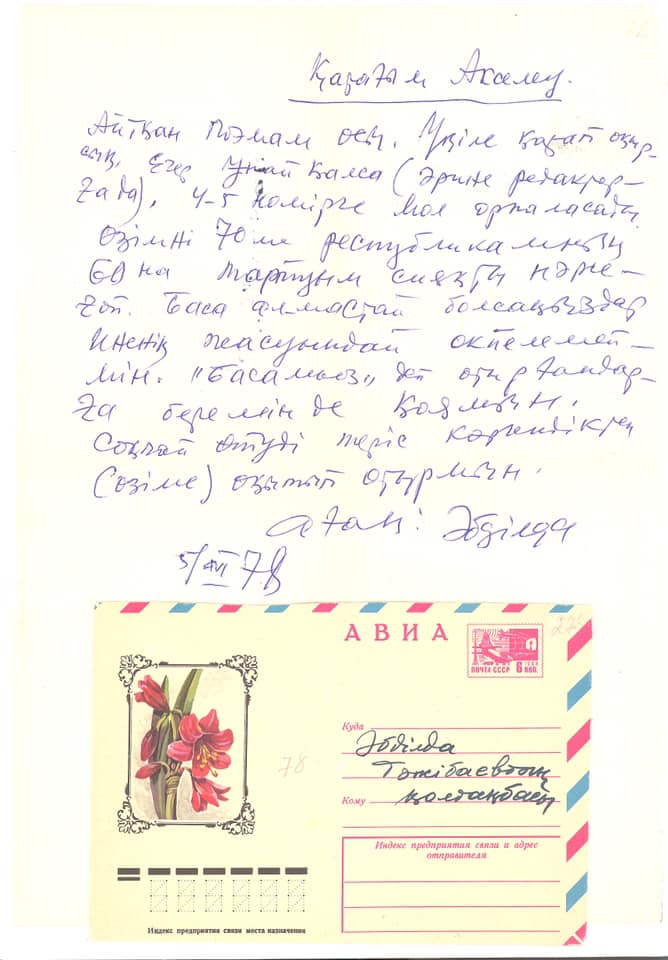 Қарағым Акселеу.
Айтқан поэмам осы. Үңіле қарап оқыр-
сың. Егер ұнай қалса (әрине редактор-
ға да), 4-5 номірге мол орналасады.
Өзімнің 70 ме республиканың
60 на тартуым сияқты нәрсе-
ғой. Баса алмастай болсаңыздар
иненің жасуындай өкпелемей-
мін. "Басамыз" деп отырғандар-
ға беремін де қоямын.
Соңғай өтуді теріс көргендіктен
(өзіме) оқытып отырмын.
ағаң: Әбділда
5/VI 78
АВИА
ПОЧТА СССР 6 коп.
Куда
Әбділда
Тәжібаевтың
Кому қолтаңбасы
78
Индекс предприятия связи и адрес
отправителя
Индекс предприятия связи места назначения